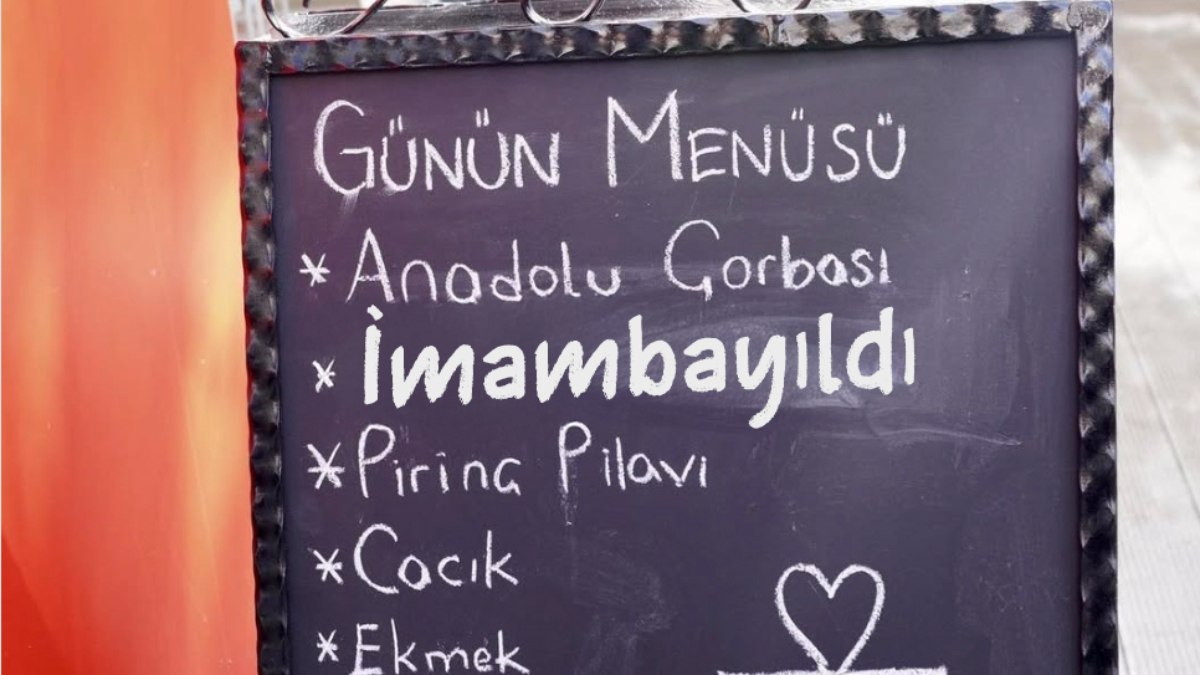 GÜNÜN MENÜSÜ
* Anadolu Çorbası
* İmambayıldı
* Pirinç Pilavı
* Cacık
* Ekmek